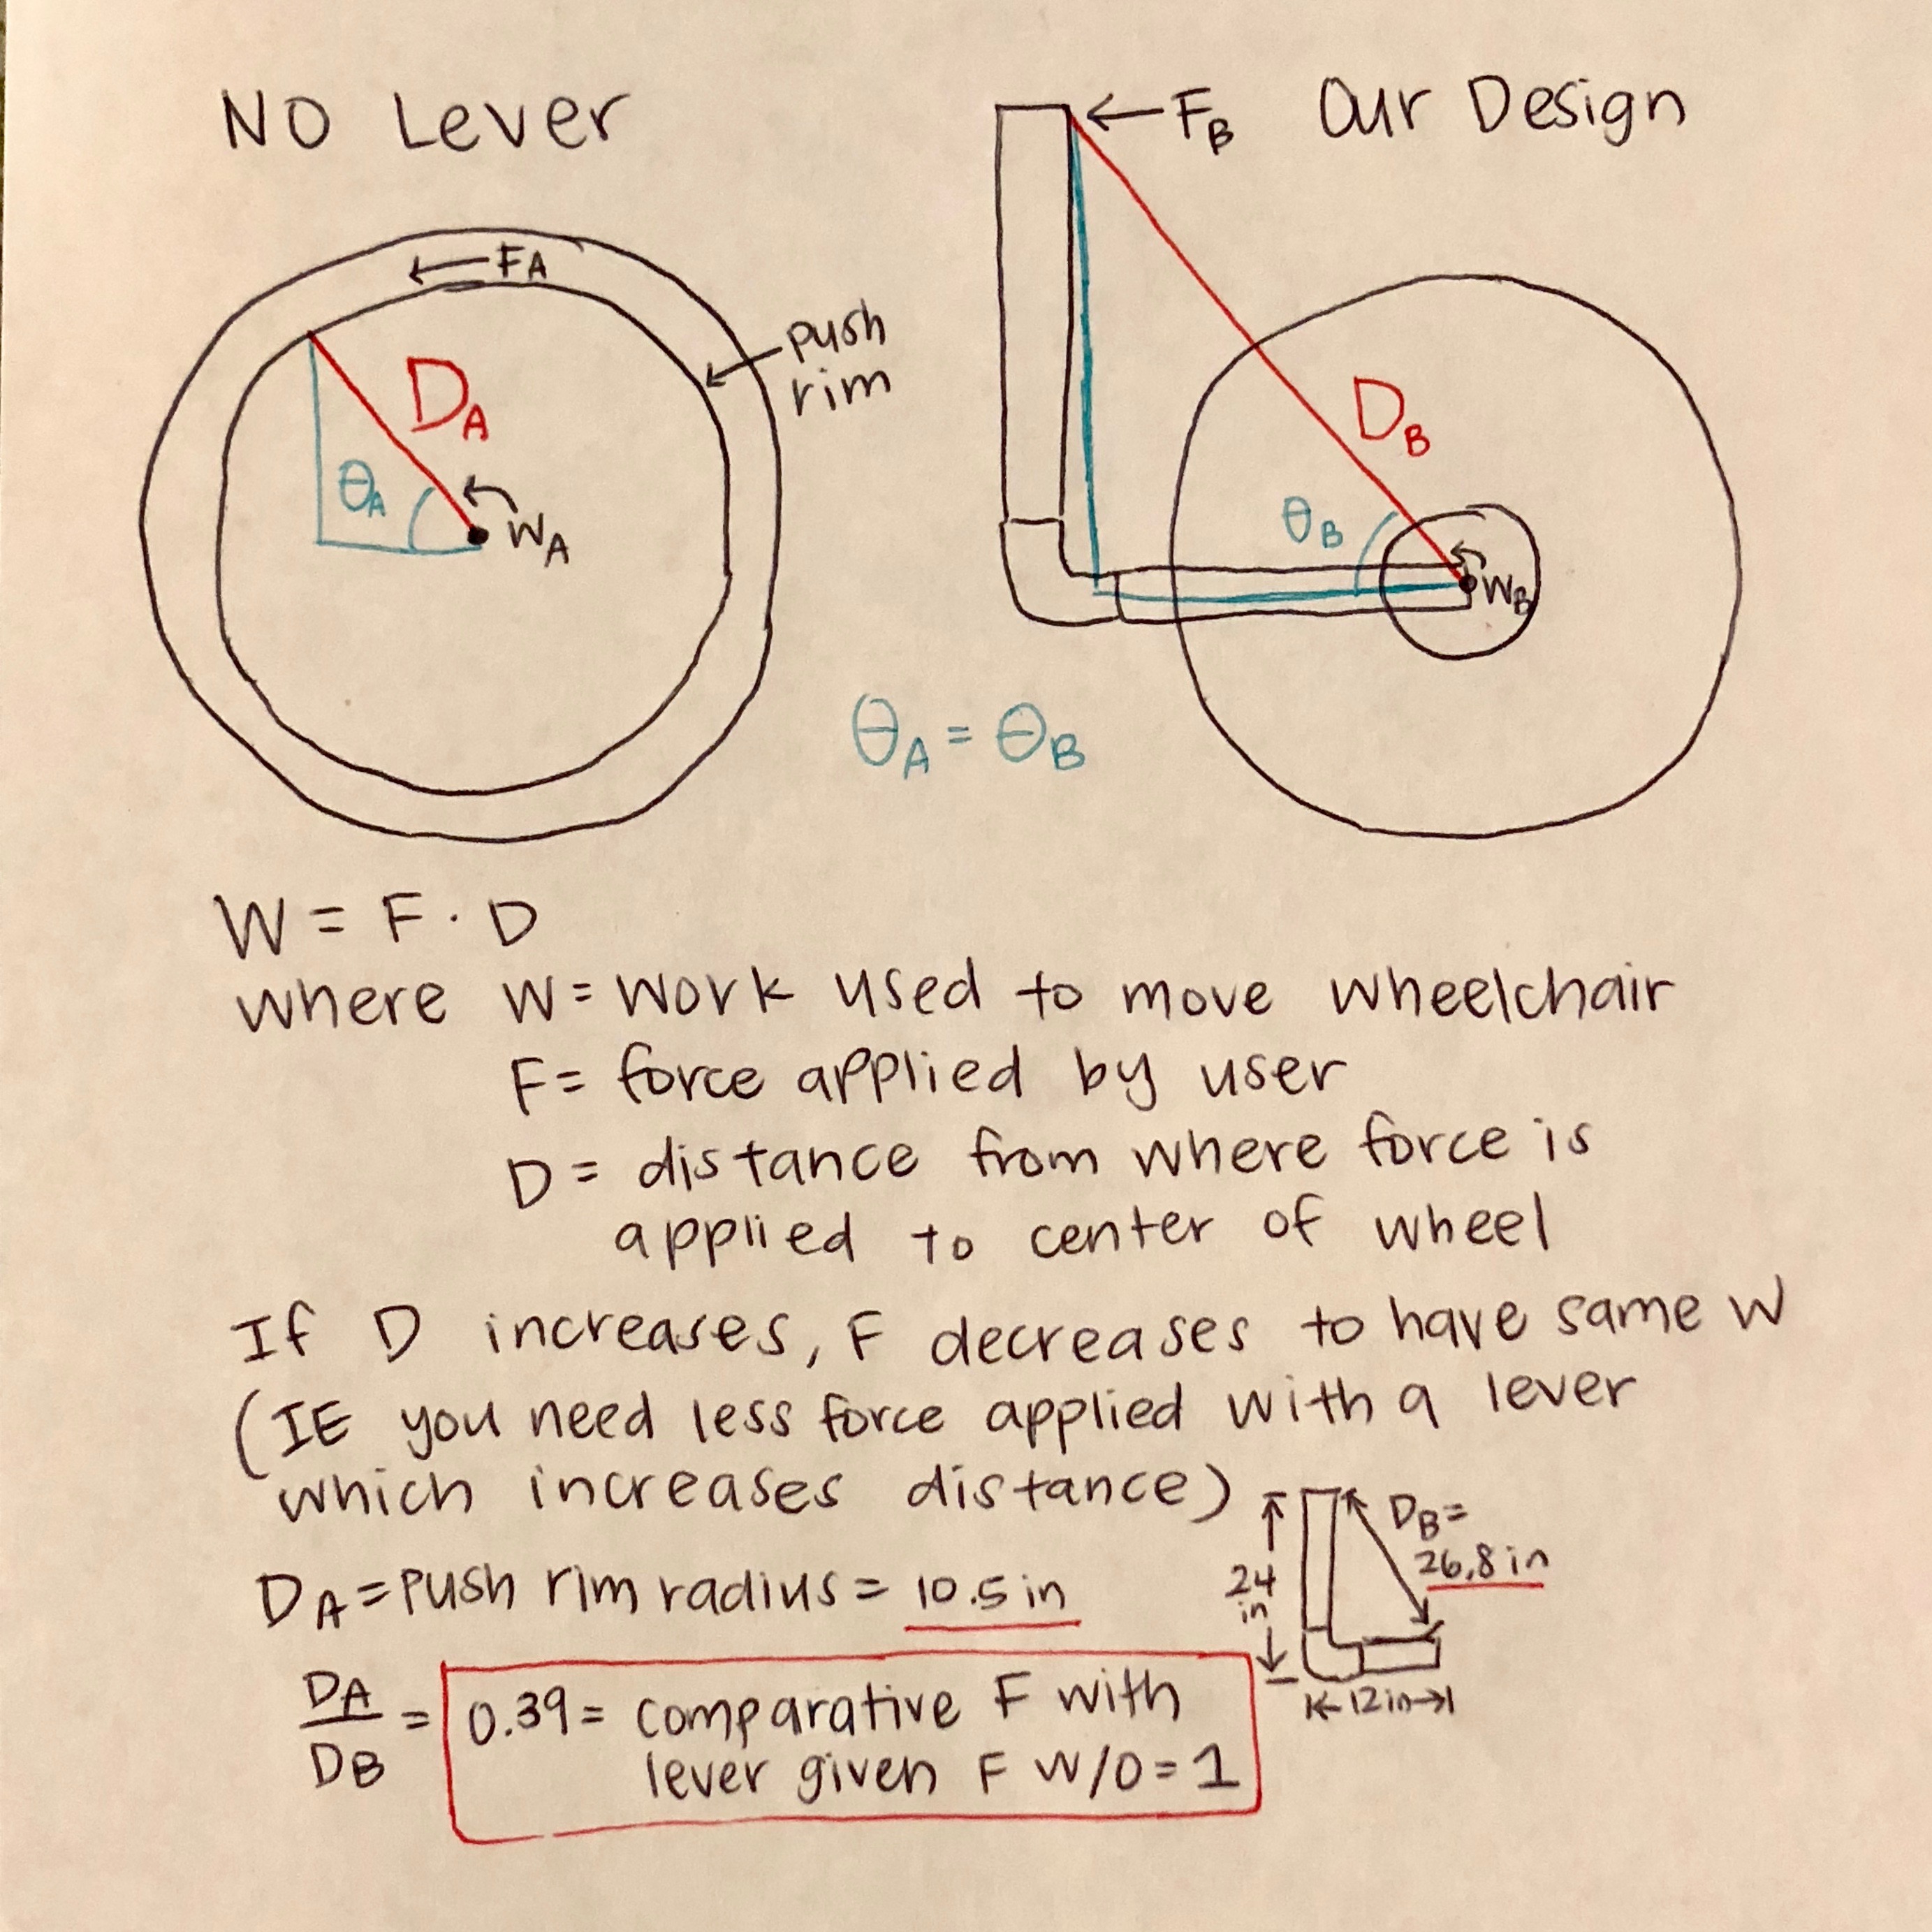 NO Lever
← FB Our Design
← FA
push
rim
DA
θA
WA
DB
θB
WB
θA = θB
W = F · D
where W = work used to move wheelchair
F = force applied by user
D = distance from where force is
applied to center of wheel
If D increases, F decreases to have same W
(IE you need less force applied with a lever
which increases distance)
DB =
26.8 in
24
in
12 in
DA = push rim radius = 10.5 in
DA
DB
= 0.39 = comparative F with
lever given F w/o = 1